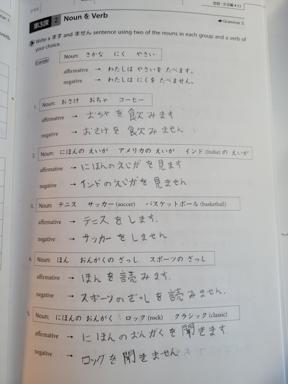 第3課 2 Noun & Verb
Grammar 3
Write a ます and ません sentence using two of the nouns in each group and a verb of
your choice.
Example
Noun: さかな にく やさい
affirmative → わたしは やさいを たべます。
negative → わたしは にくを たべません。
1. Noun: おさけ おちゃ コーヒー
affirmative → おちゃ を 飲みます
negative → おさけ を 飲みません
2. Noun: にほんの えいが アメリカの えいが インド (India) の えいが
affirmative → にほんの えいがを 見ます
negative → インドの えいがを 見ません
3. Noun: テニス サッカー (soccer) バスケットボール (basketball)
affirmative → テニス を します。
negative → サッカー を しません
4. Noun: ほん おんがくの ざっし スポーツの ざっし
affirmative → ほん を 読みます。
negative → スポーツの ざっし を 読みません。
5. Noun: にほんの おんがく ロック (rock) クラシック (classic)
affirmative → にほんの おんがくを 聞きます
negative → ロックを 聞きません